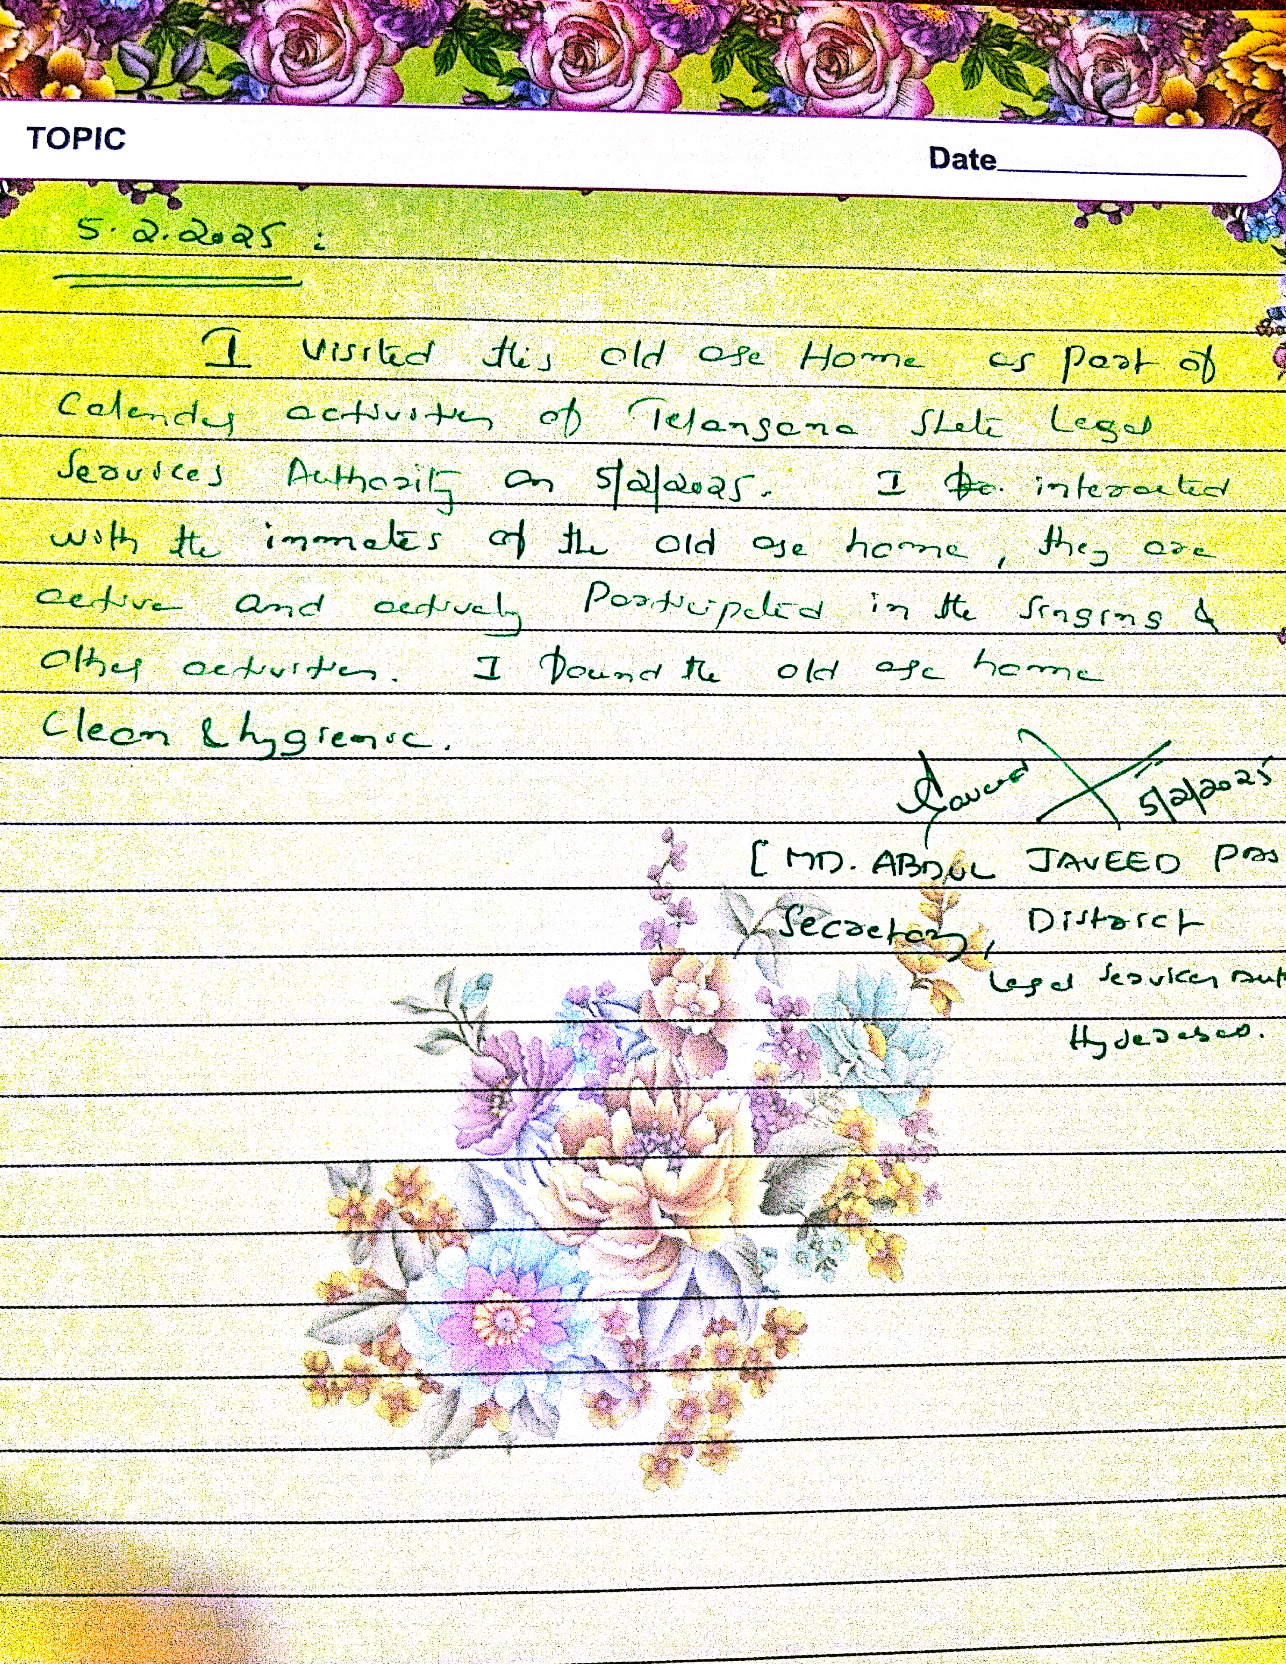 TOPIC
Date
5.2.2025 :
I visited this old age Home as part of
Calendar activities of Telangana State Legal
Services Authority on 5/2/2025. I interacted
with the inmates of the old age home, they are
active and actively Participated in the singing &
other activities. I found the old age home
Clean & hygienic.
Javeed 5/2/2025
[ MD. ABDUL JAVEED
Secretary, District
Legal Services Aut
Hyderabad.